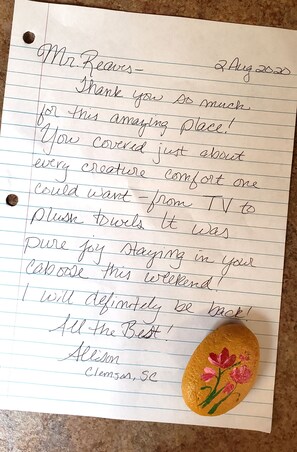 Mr. Reaves- 2 Aug 2020
Thank you so much
for this amazing place!
You covered just about
every creature comfort one
could want - from TV to
plush towels. It was
pure joy staying in your
caboose this weekend!
I will definitely be back!
All the Best!
Allison
Clemson, SC